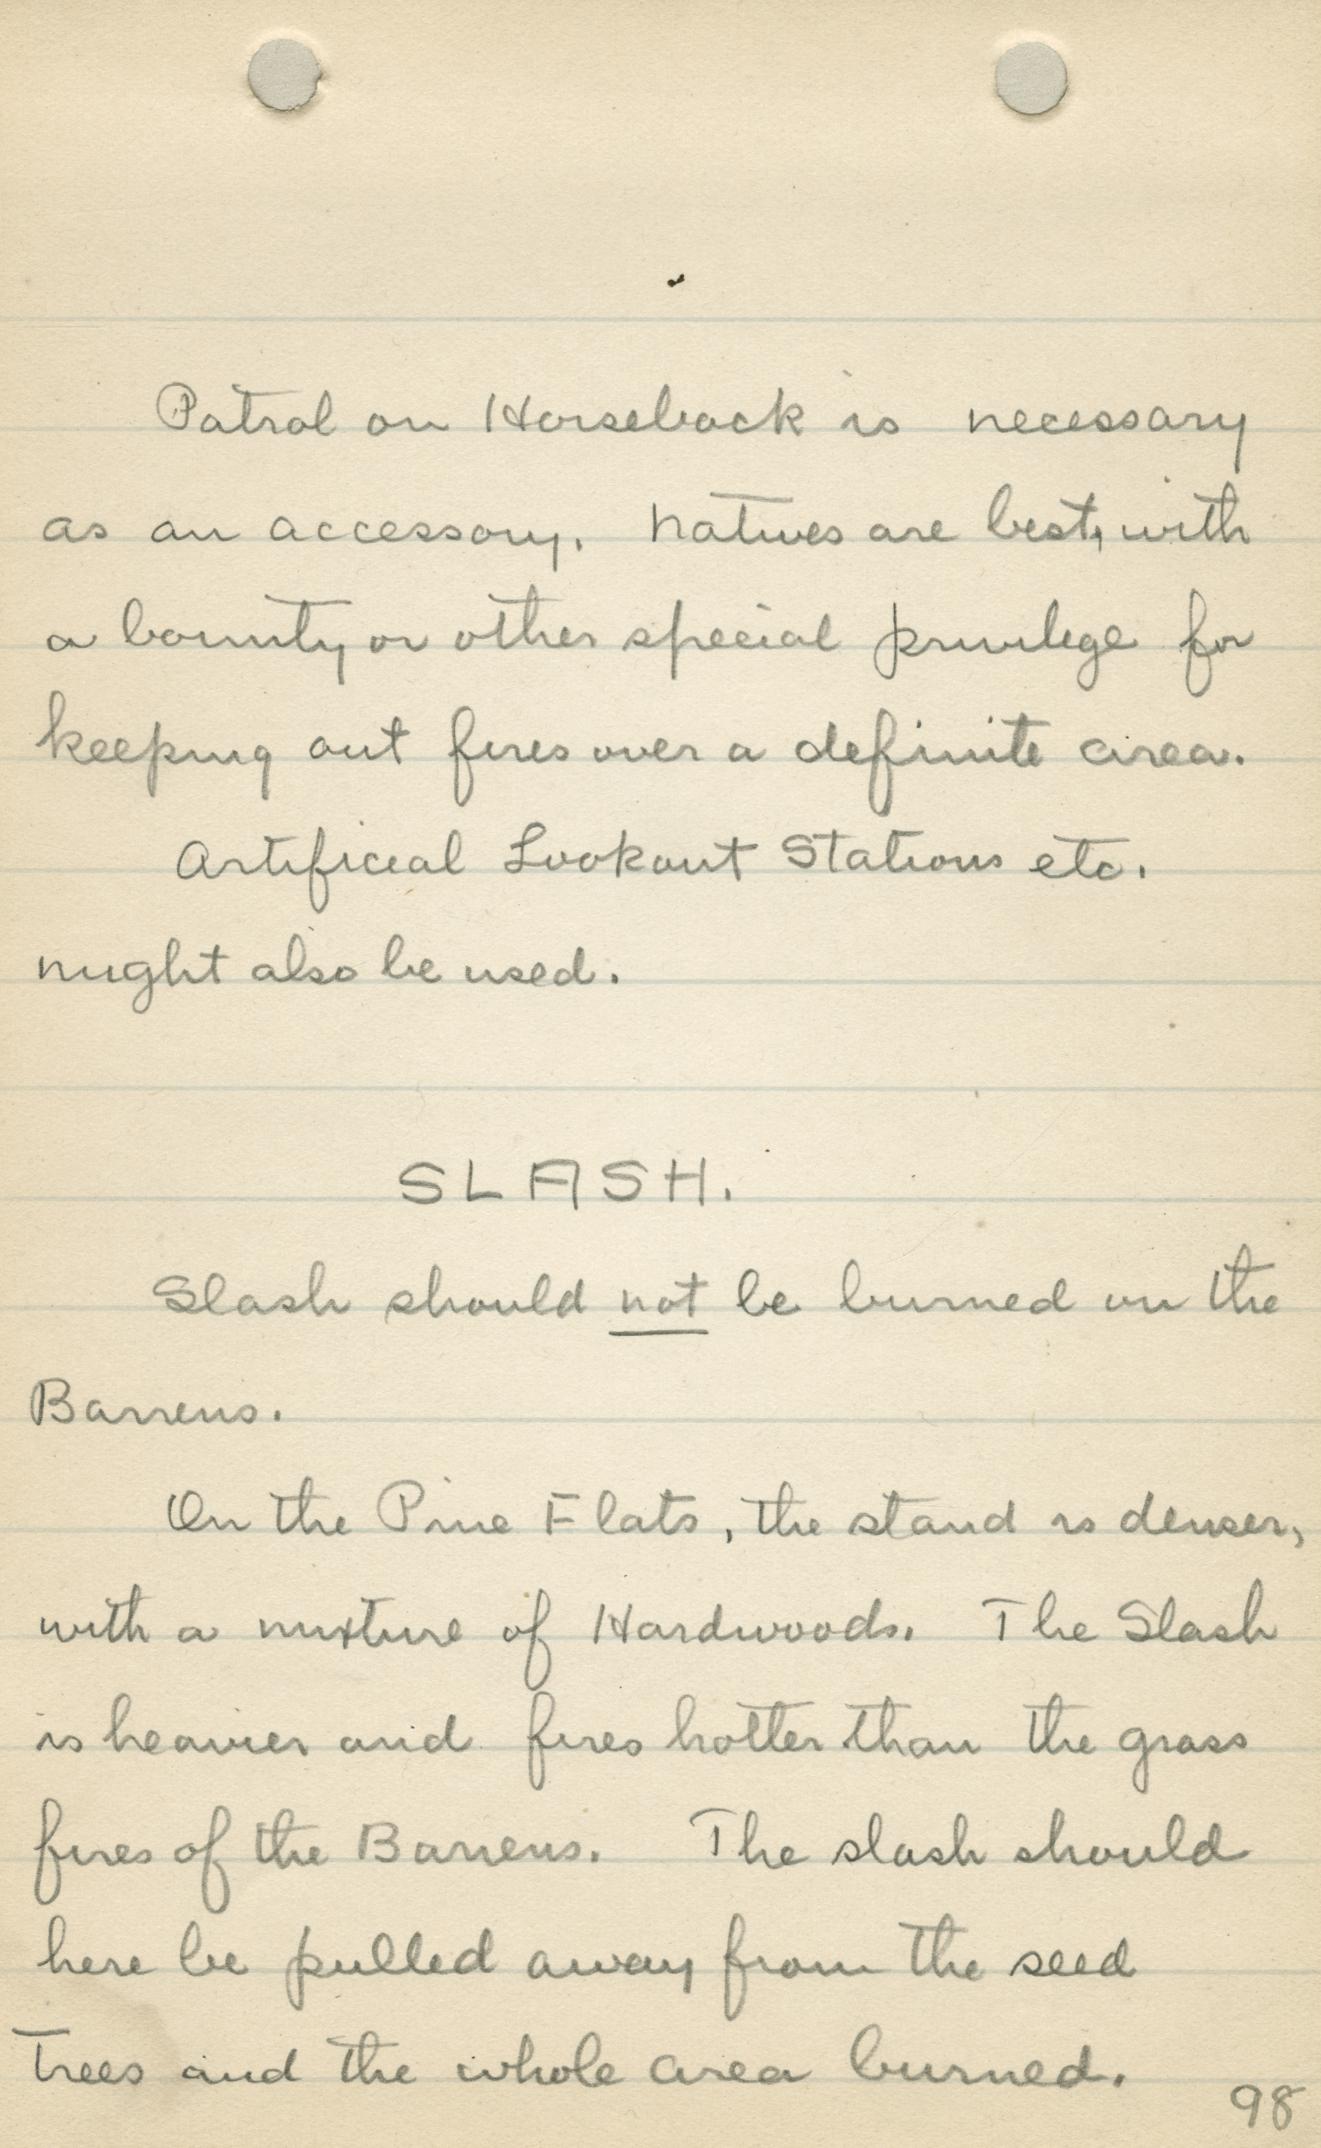 Patrol on Horseback is necessary
as an accessory. Natives are best, with
a bounty or other special privilege for
keeping out fires over a definite area.
Artificial Lookout Stations etc.
might also be used.
SLASH.
Slash should not be burned on the
Barrens.
On the Pine Flats, the stand is denser,
with a mixture of Hardwoods. The Slash
is heavier and fires hotter than the grass
fires of the Barrens. The slash should
here be pulled away from the seed
Trees and the whole area burned.
98